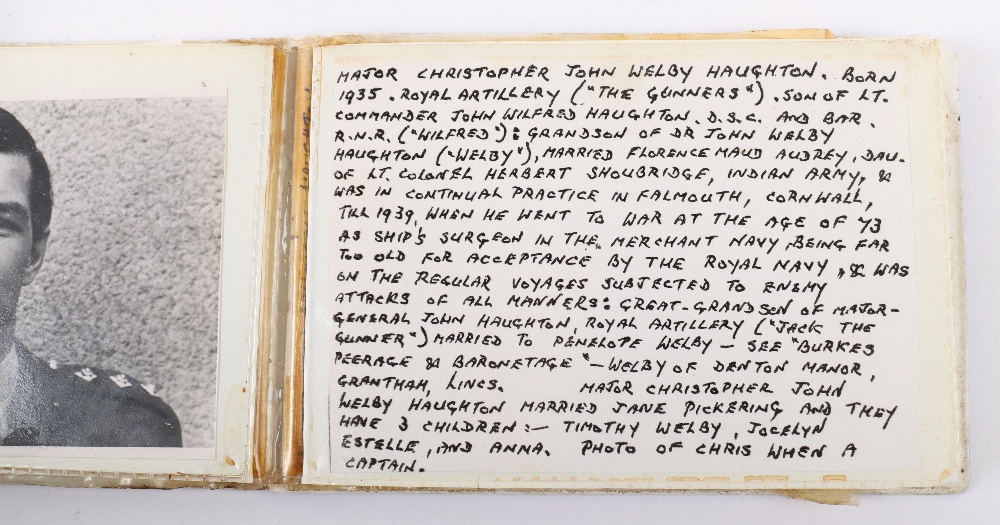 MAJOR CHRISTOPHER JOHN WELBY HAUGHTON. BORN
1935. ROYAL ARTILLERY ("THE GUNNERS"). SON OF LT.
COMMANDER JOHN WILFRED HAUGHTON. D.S.C. AND BAR.
R.N.R. ("WILFRED"): GRANDSON OF DR JOHN WELBY
HAUGHTON ("WELBY"), MARRIED FLORENCE MAUD AUDREY, DAU.
OF LT. COLONEL HERBERT SHOUBRIDGE, INDIAN ARMY, &
WAS IN CONTINUAL PRACTICE IN FALMOUTH, CORNWALL,
TILL 1939, WHEN HE WENT TO WAR AT THE AGE OF 73
AS SHIP'S SURGEON IN THE MERCHANT NAVY, BEING FAR
TOO OLD FOR ACCEPTANCE BY THE ROYAL NAVY, & WAS
ON THE REGULAR VOYAGES SUBJECTED TO ENEMY
ATTACKS OF ALL MANNERS: GREAT-GRANDSON OF MAJOR-
GENERAL JOHN HAUGHTON, ROYAL ARTILLERY ("JACK THE
GUNNER") MARRIED TO PENELOPE WELBY - SEE "BURKES
PEERAGE & BARONETAGE" - WELBY OF DENTON MANOR,
GRANTHAM, LINCS. MAJOR CHRISTOPHER JOHN
WELBY HAUGHTON MARRIED JANE PICKERING AND THEY
HAVE 3 CHILDREN:- TIMOTHY WELBY, JOCELYN
ESTELLE, AND ANNA. PHOTO OF CHRIS WHEN A
CAPTAIN.